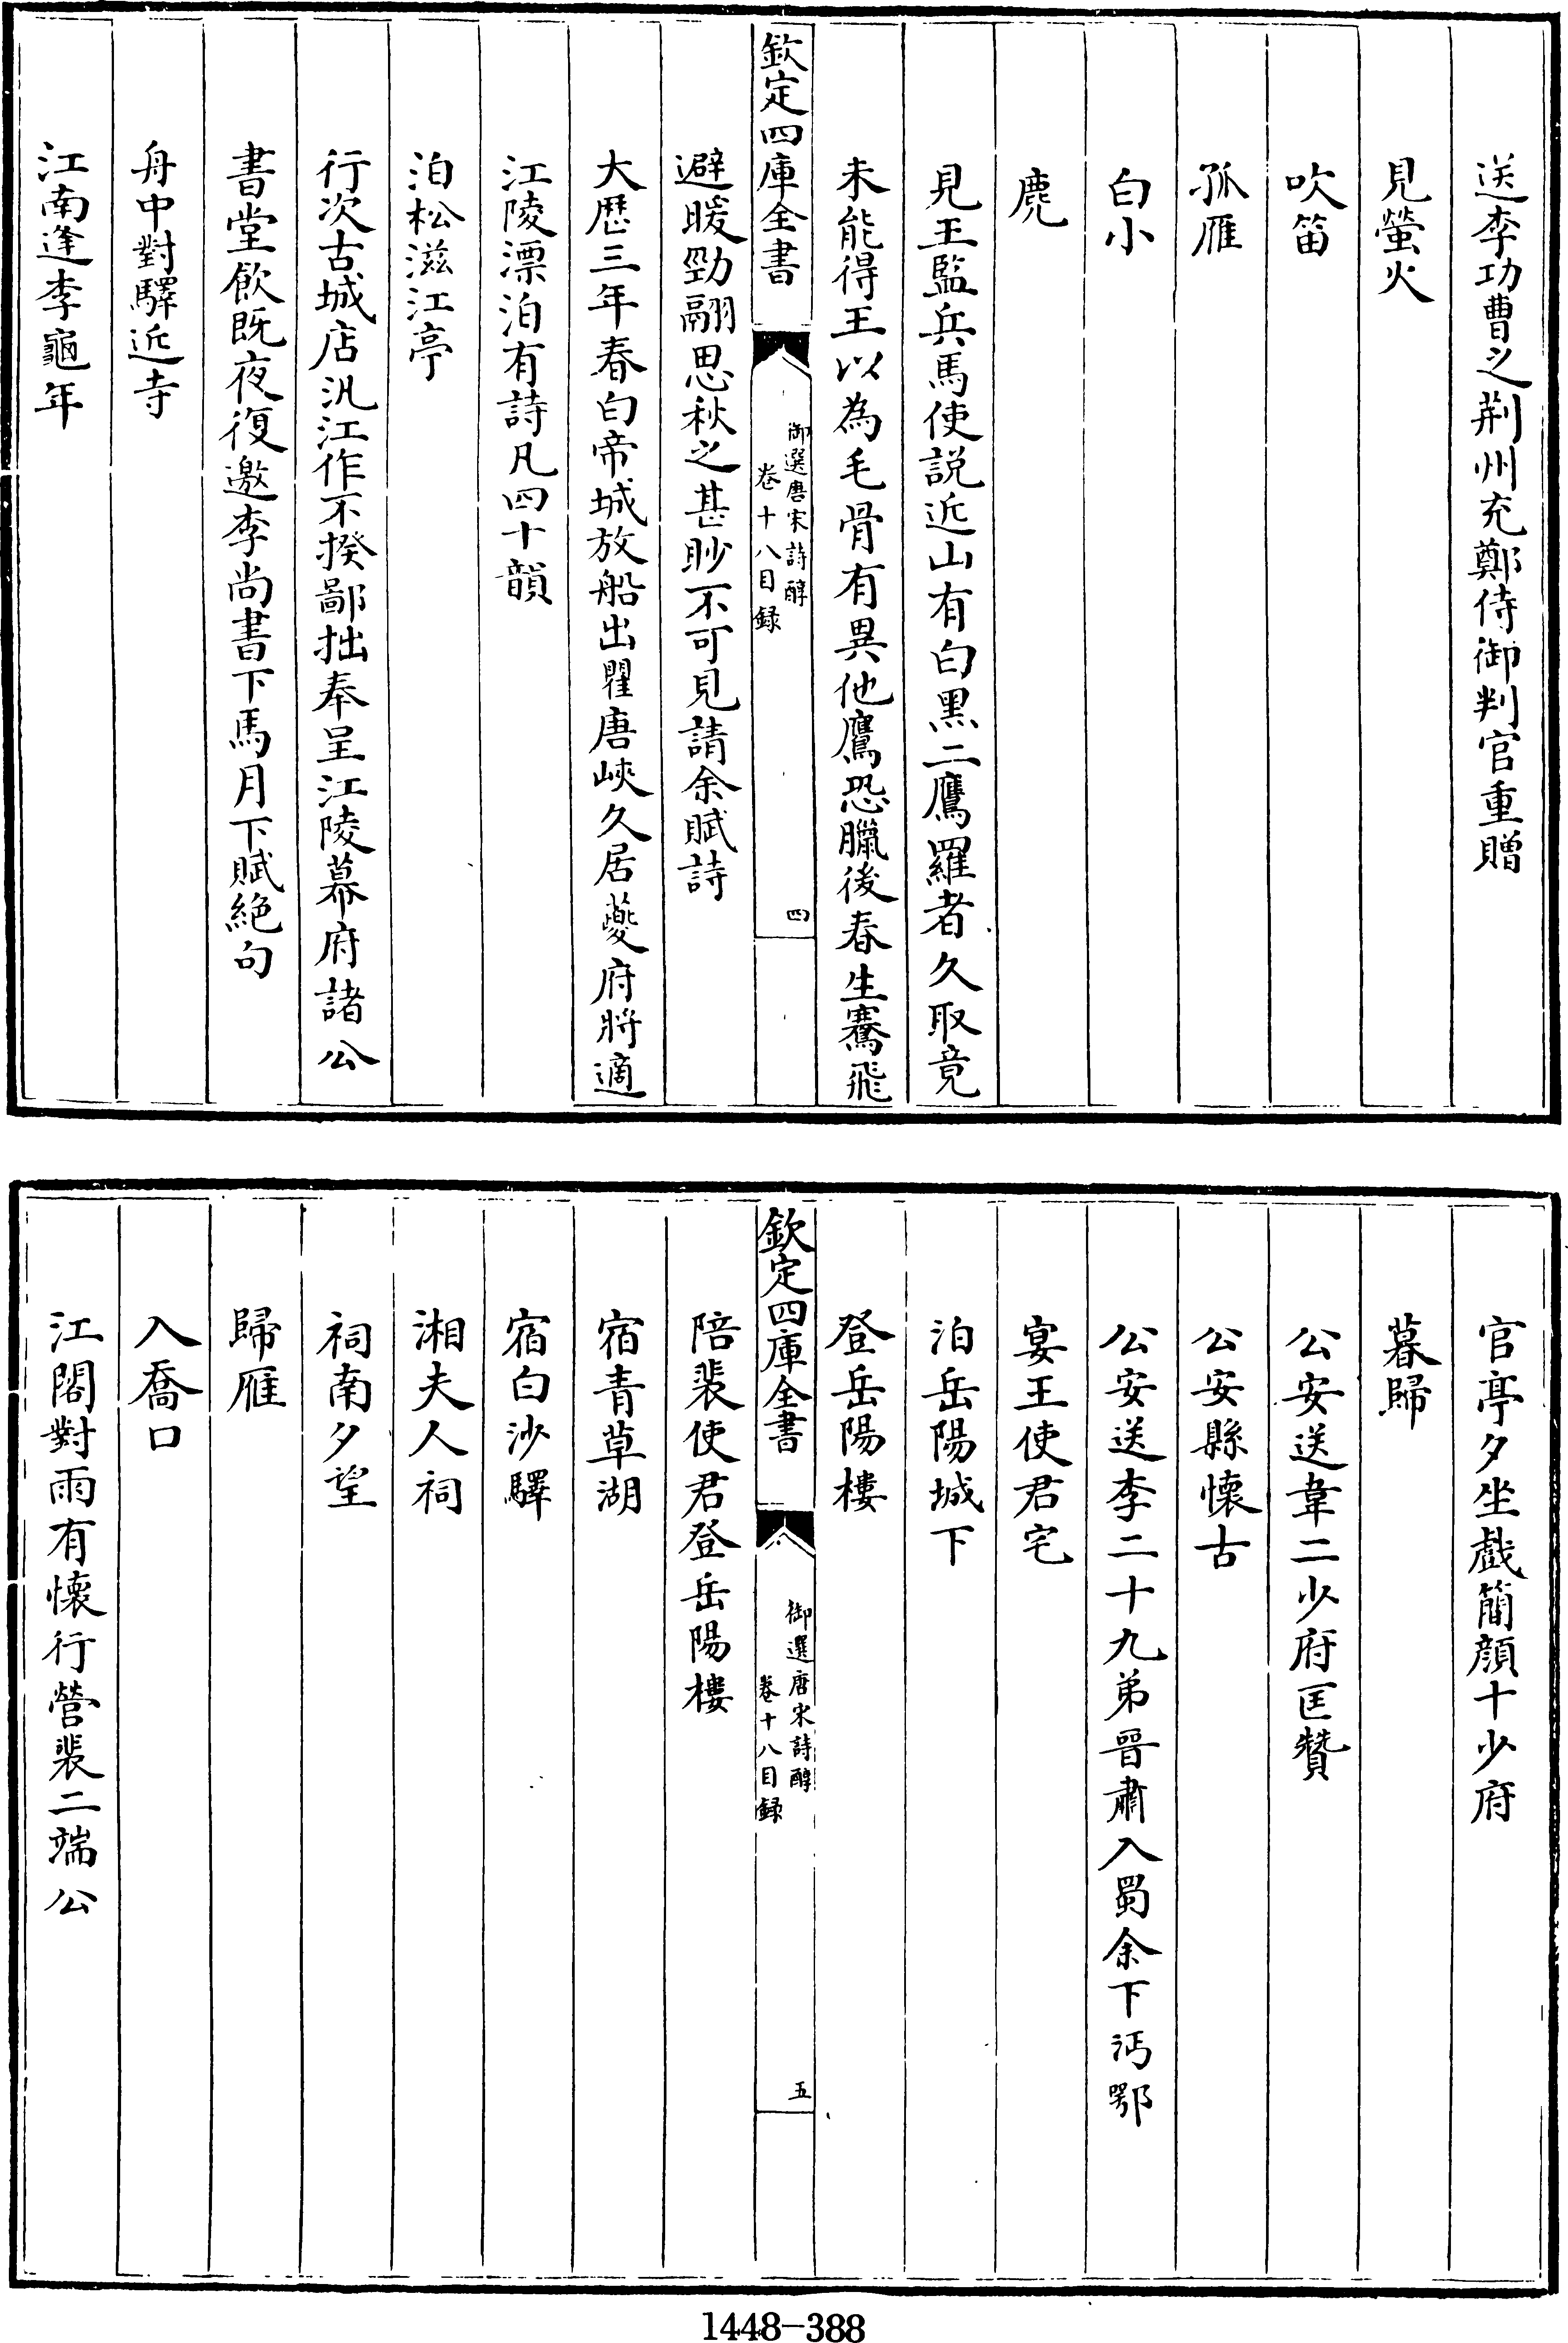 送李功曹之荆州充鄭侍御判官重贈
見螢火
吹笛
孤雁
白小
麂
見王監兵馬使説近山有白黒二鷹羅者久取竟
未能得王以為毛骨有異他鷹恐臘後春生騫飛
欽定四庫全書
御選唐宋詩醇
卷十八目録
四
避暖勁翮思秋之甚眇不可見請余賦詩
大歴三年春白帝城放船出瞿唐峽久居夔府將適
江陵漂泊有詩凡四十韻
泊松滋江亭
行次古城店汎江作不揆鄙拙奉呈江陵幕府諸公
書堂飲既夜復邀李尚書下馬月下賦絶句
舟中對驛近寺
江南逢李龜年
官亭夕坐戲簡顔十少府
暮歸
公安送韋二少府匡贊
公安縣懐古
公安送李二十九弟晉肅入蜀余下沔鄂
宴王使君宅
泊岳陽城下
登岳陽樓
欽定四庫全書
御選唐宋詩醇
卷十八目録
五
陪裴使君登岳陽樓
宿青草湖
宿白沙驛
湘夫人祠
祠南夕望
歸雁
入喬口
江閣對雨有懐行營裴二端公
1448-388